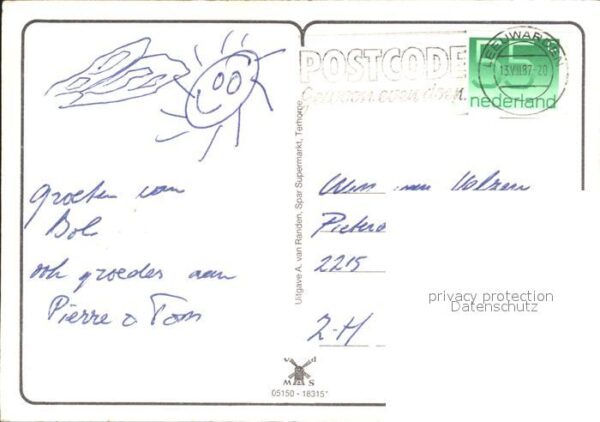 POSTCODE
gewoon even doen
LEEUWARDEN
13.VII.87.-20
55
nederland
groeten van
Bob
ook groeten aan
Pierre & Tom
Uitgave A. van Randen, Spar Supermarkt, Terhorne
Wim van Velzen
Pieter
2215
Z-H
privacy protection
Datenschutz
v d
M S
05150 - 18315*